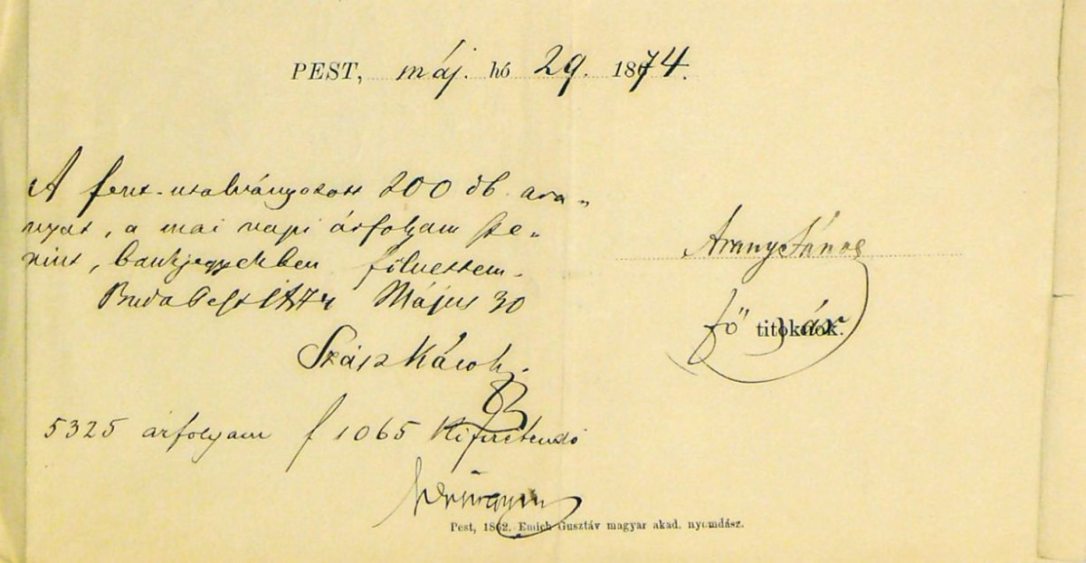 PEST, máj. hó 29. 1874.
A fent utalványozott 200 db. ara-
nyat, a mai napi árfolyam sze-
rint, bankjegyekben fölvettem.
Budapest 1874 Május 30
Szász Károly.
Arany János
fő titoknok.
5325 árfolyam f 1065 Kifizetendő
Pest, 1862. Emich Gusztáv magyar akad. nyomdász.